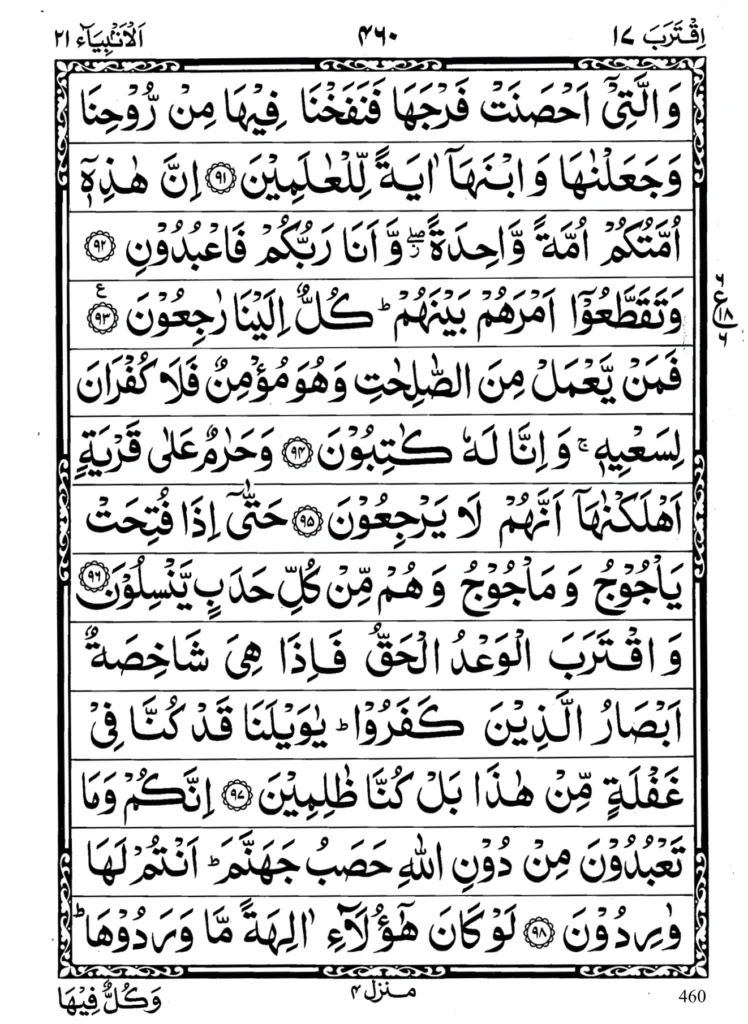 اِقْتَرَبَ ١٧ ٤٦٠ اَلْاَنْۢبِيَآء ٢١
وَالَّتِيْٓ اَحْصَنَتْ فَرْجَهَا فَنَفَخْنَا فِيْهَا مِنْ رُّوْحِنَا
وَجَعَلْنٰهَا وَابْنَهَآ اٰيَةً لِّلْعٰلَمِيْنَ ۝٩١ اِنَّ هٰذِهٖٓ
اُمَّتُكُمْ اُمَّةً وَّاحِدَةً ۖ وَّاَنَا رَبُّكُمْ فَاعْبُدُوْنِ ۝٩٢
وَتَقَطَّعُوْٓا اَمْرَهُمْ بَيْنَهُمْ ؕ كُلٌّ اِلَيْنَا رٰجِعُوْنَ ۝٩٣ ع
٦ ع ١٨ ٦
فَمَنْ يَّعْمَلْ مِنَ الصّٰلِحٰتِ وَهُوَ مُؤْمِنٌ فَلَا كُفْرَانَ
لِسَعْيِهٖ ۚ وَاِنَّا لَهٗ كٰتِبُوْنَ ۝٩٤ وَحَرٰمٌ عَلٰى قَرْيَةٍ
اَهْلَكْنٰهَآ اَنَّهُمْ لَا يَرْجِعُوْنَ ۝٩٥ حَتّٰىٓ اِذَا فُتِحَتْ
يَاْجُوْجُ وَمَاْجُوْجُ وَهُمْ مِّنْ كُلِّ حَدَبٍ يَّنْسِلُوْنَ ۝٩٦
وَاقْتَرَبَ الْوَعْدُ الْحَقُّ فَاِذَا هِيَ شَاخِصَةٌ
اَبْصَارُ الَّذِيْنَ كَفَرُوْا ؕ يٰوَيْلَنَا قَدْ كُنَّا فِيْ
غَفْلَةٍ مِّنْ هٰذَا بَلْ كُنَّا ظٰلِمِيْنَ ۝٩٧ اِنَّكُمْ وَمَا
تَعْبُدُوْنَ مِنْ دُوْنِ اللّٰهِ حَصَبُ جَهَنَّمَ ؕ اَنْتُمْ لَهَا
وٰرِدُوْنَ ۝٩٨ لَوْ كَانَ هٰٓؤُلَآءِ اٰلِهَةً مَّا وَرَدُوْهَا ؕ
460 منزل ٤ وَكُلٌّ فِيْهَا